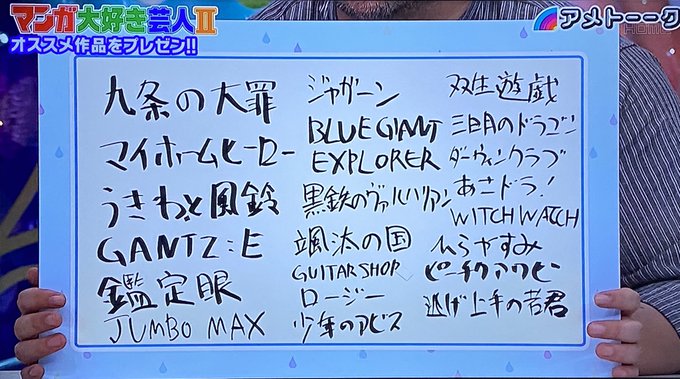 マンガ大好き芸人Ⅱ
オススメ作品をプレゼン!!
アメトーーク
九条の大罪
マイホームヒーロー
うきわと風鈴
GANTZ:E
鑑定眼
JUMBO MAX
ジャガーン
BLUE GIANT
EXPLORER
黒鉄のヴァルハリアン
颯汰の国
GUITAR SHOP
ロージー
少年のアビス
双生遊戯
三日月のドラゴン
ダーウィンクラブ
あさドラ!
WITCH WATCH
ムラヤすみ
ピーチクアワビー
逃げ上手の若君